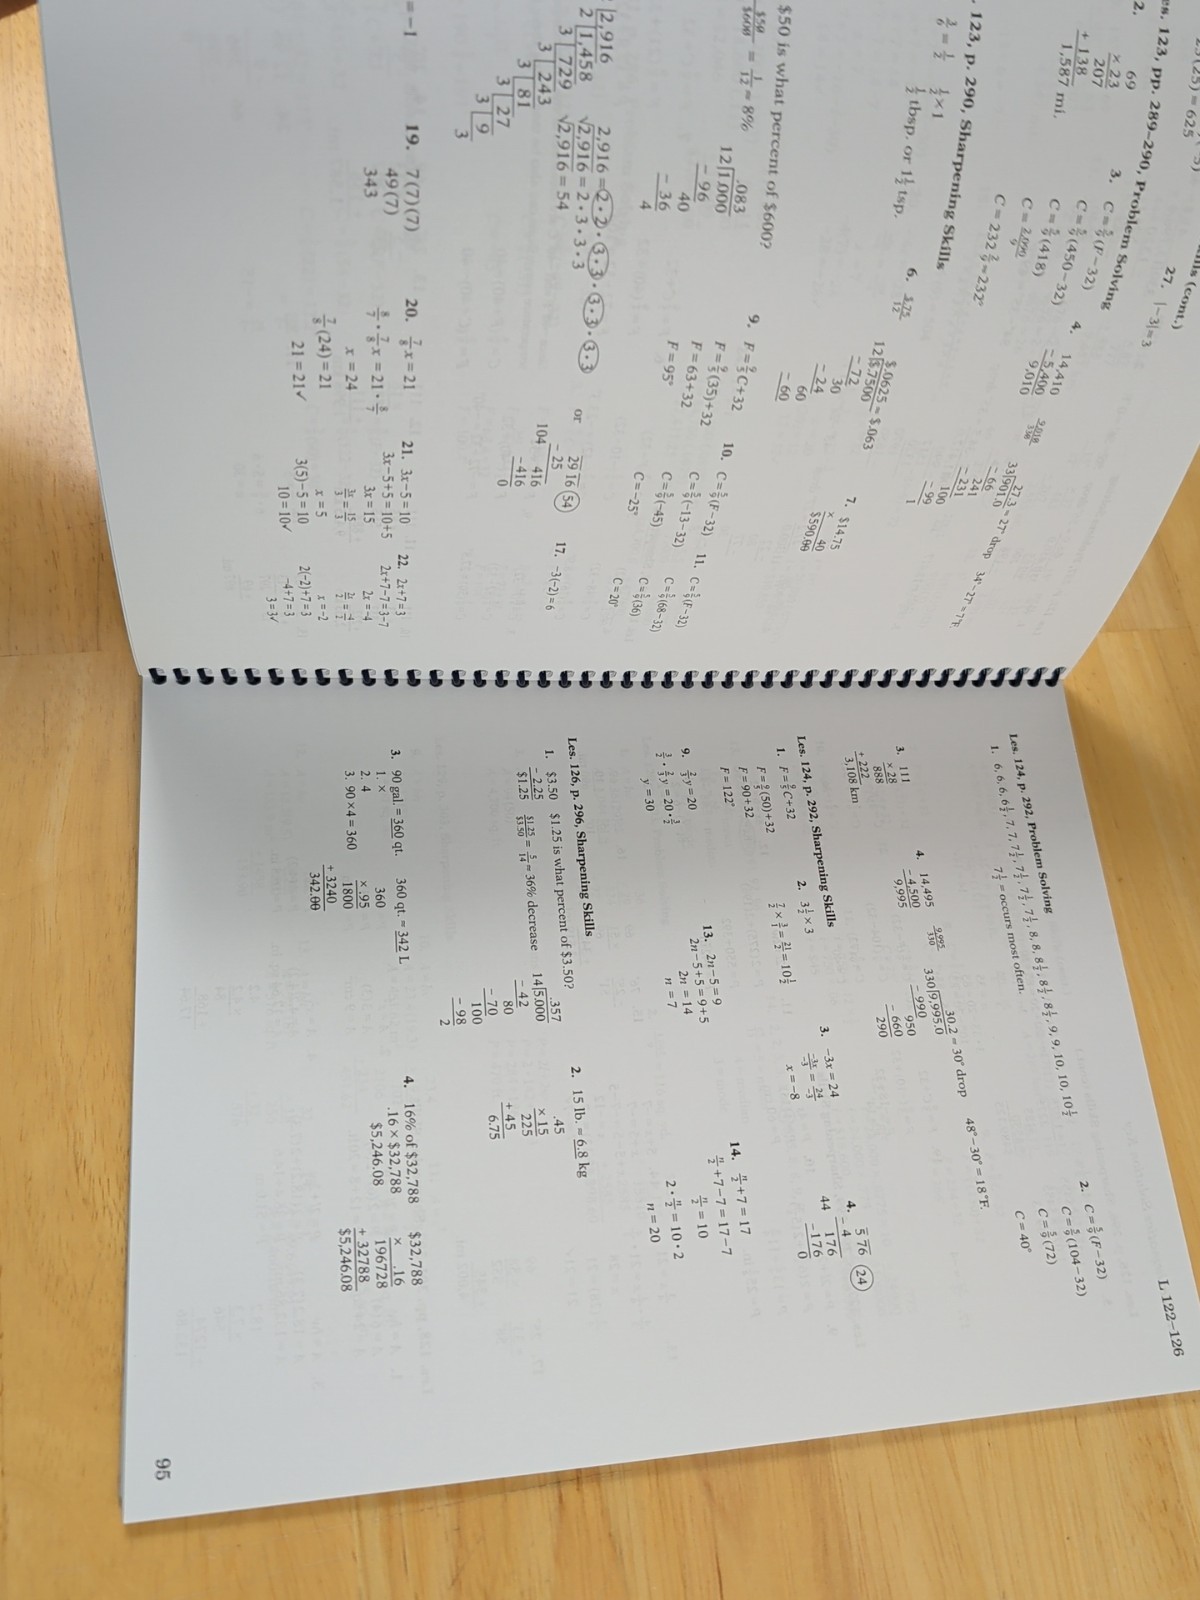 (25) = 625
27. |−3| = 3
es. 123, pp. 289–290, Problem Solving
2. 69
× 23
207
+ 138
1,587 mi.
3. C = 5/9(F−32)
C = 5/9(450−32)
C = 5/9(418)
C = 2,090/9
C = 232 2/9 ≈ 232°
4. 14,410
− 5,400
9,010
27.3 ≈ 27° drop
33|901.0
− 66
241
− 231
100
− 99
1
123, p. 290, Sharpening Skills
3/6 = 1/2
1/2 × 1
1/2 tbsp. or 1 1/2 tsp.
6. $.75/12
$.0625 ≈ $.063
12|$.7500
− 72
30
− 24
60
− 60
7. $14.75
× 40
$590.00
$50 is what percent of $600?
$50/$600 = 1/12 ≈ 8%
.083
12|1.000
− 96
40
− 36
4
9. F = 9/5C+32
F = 9/5(35)+32
F = 63+32
F = 95°
10. C = 5/9(F−32)
C = 5/9(−13−32)
C = 5/9(−45)
C = −25°
11. C = 5/9(F−32)
C = 5/9(68−32)
C = 5/9(36)
C = 20°
2|2,916
2|1,458
3|729
3|243
3|81
3|27
3|9
3
2,916 = 2·2·3·3·3·3·3·3
√2,916 = 2·3·3·3
√2,916 = 54
or
29 16 54
− 25
104 416
− 416
0
17. −3(−2) = 6
= −1
19. 7(7)(7)
49(7)
343
20. 7/8x = 21
8/7·7/8x = 21·8/7
x = 24
7/8(24) = 21
21 = 21✓
21. 3x−5 = 10
3x−5+5 = 10+5
3x = 15
3x/3 = 15/3
x = 5
3(5)−5 = 10
10 = 10✓
22. 2x+7 = 3
2x+7−7 = 3−7
2x = −4
2x/2 = −4/2
x = −2
2(−2)+7 = 3
−4+7 = 3
3 = 3✓
L 122–126
Les. 124, p. 292, Problem Solving
1. 6, 6, 6, 6 1/2, 7, 7, 7 1/2, 7 1/2, 7 1/2, 7 1/2, 8, 8, 8 1/2, 8 1/2, 8 1/2, 9, 9, 10, 10, 10 1/2
7 1/2 = occurs most often.
2. C = 5/9(F−32)
C = 5/9(104−32)
C = 5/9(72)
C = 40°
3. 111
× 28
888
+ 222
3,108 km
4. 14,495
− 4,500
9,995
9,995/330
30.2 ≈ 30° drop
330|9,995.0
− 990
950
− 660
290
48° − 30° = 18°F.
Les. 124, p. 292, Sharpening Skills
1. F = 9/5C+32
F = 9/5(50)+32
F = 90+32
F = 122°
2. 3 1/2 × 3
7/2 × 3/1 = 21/2 = 10 1/2
3. −3x = 24
−3x/−3 = 24/−3
x = −8
4. 5 76 24
− 4
44 176
− 176
0
9. 2/3y = 20
3/2·2/3y = 20·3/2
y = 30
13. 2n−5 = 9
2n−5+5 = 9+5
2n = 14
n = 7
14. n/2+7 = 17
n/2+7−7 = 17−7
n/2 = 10
2·n/2 = 10·2
n = 20
Les. 126, p. 296, Sharpening Skills
1. $3.50
− 2.25
$1.25
$1.25 is what percent of $3.50?
$1.25/$3.50 = 5/14 ≈ 36% decrease
.357
14|5.000
− 42
80
− 70
100
− 98
2
2. 15 lb. ≈ 6.8 kg
.45
× 15
225
+ 45
6.75
3. 90 gal. = 360 qt.
1. ×
2. 4
3. 90 × 4 = 360
360 qt. ≈ 342 L
360
× .95
1800
+ 3240
342.00
4. 16% of $32,788
.16 × $32,788
$5,246.08
$32,788
× .16
196728
+ 32788
$5,246.08
95